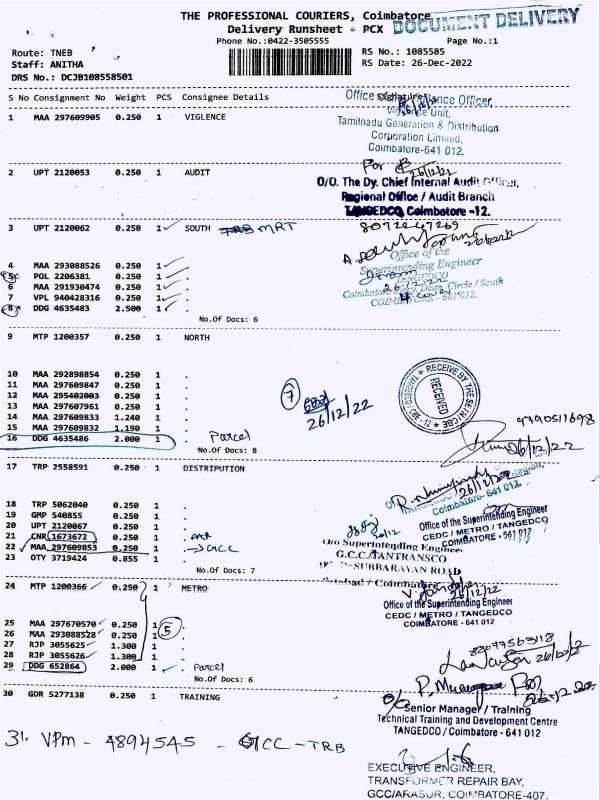 THE PROFESSIONAL COURIERS, Coimbatore
DOCUMENT DELIVERY
Delivery Runsheet - PCX
Phone No.:0422-3505555 Page No.:1
Route: TNEB RS No.: 1085585
Staff: ANITHA RS Date: 26-Dec-2022
DRS No.: DCJB108558501
S No Consignment No Weight PCS Consignee Details Signature
Office Vigilance Officer,
1 MAA 297609905 0.250 1 VIGLENCE
Vigilance Unit,
Tamilnadu Generation & Distribution
Corporation Limited,
Coimbatore-641 012.
For 26/12/22
2 UPT 2120053 0.250 1 AUDIT
O/O. The Dy. Chief Internal Audit Officer,
Regional Office / Audit Branch
TANGEDCO, Coimbatore -12.
3 UPT 2120062 0.250 1 SOUTH MRT
8072247269
Office of the
4 MAA 293088526 0.250 1 .
Superintending Engineer
5 POL 2206381 0.250 1 .
TANGEDCO
6 MAA 291930474 0.250 1 .
26.12.22
7 VPL 940428316 0.250 1 .
Coimbatore Elect. Distn. Circle / South
8 DDG 4635483 2.500 1 .
COIMBATORE - 641 012.
No.Of Docs: 6
9 MTP 1200357 0.250 1 NORTH
10 MAA 292898854 0.250 1 .
11 MAA 297609847 0.250 1 .
12 MAA 295402003 0.250 1 .
13 MAA 297607961 0.250 1 .
14 MAA 297609833 1.240 1 .
15 MAA 297609832 1.190 1 .
16 DDG 4635486 2.000 1 . Parcel
7
26/12/22
RECEIVED
9790511698
26/12/22
No.Of Docs: 8
17 TRP 2558591 0.250 1 DISTRIPUTION
26/12/22
Coimbatore- 641 012
18 TRP 5062040 0.250 1 .
19 GMP 540855 0.250 1 .
20 UPT 2120067 0.250 1 .
21 CNR 1673672 0.250 1 .
22 MAA 297609853 0.250 1 . →GCC
23 OTY 3719424 0.855 1 .
Office of the Superintending Engineer
CEDC / METRO / TANGEDCO
COIMBATORE - 641 012
O/o Superintending Engineer
G.C.C/TANTRANSCO
SUBBARAYAN ROAD
Coimbatore
No.Of Docs: 7
24 MTP 1200366 0.250 1 METRO
26/12/22
Office of the Superintending Engineer
CEDC / METRO / TANGEDCO
COIMBATORE - 641 012
25 MAA 297670570 0.250 1 .
26 MAA 293088528 0.250 1 . 5
27 RJP 3055625 1.300 1 .
28 RJP 3055626 1.300 1 .
29 DDG 652864 2.000 1 . Parcel
No.Of Docs: 6
30 GDR 5277138 0.250 1 TRAINING
Senior Manager / Training
Technical Training and Development Centre
TANGEDCO / Coimbatore - 641 012
31. VPM - 4894545 - GCC-TRB
EXECUTIVE ENGINEER,
TRANSFORMER REPAIR BAY,
GCC/ARASUR, COIMBATORE-407.